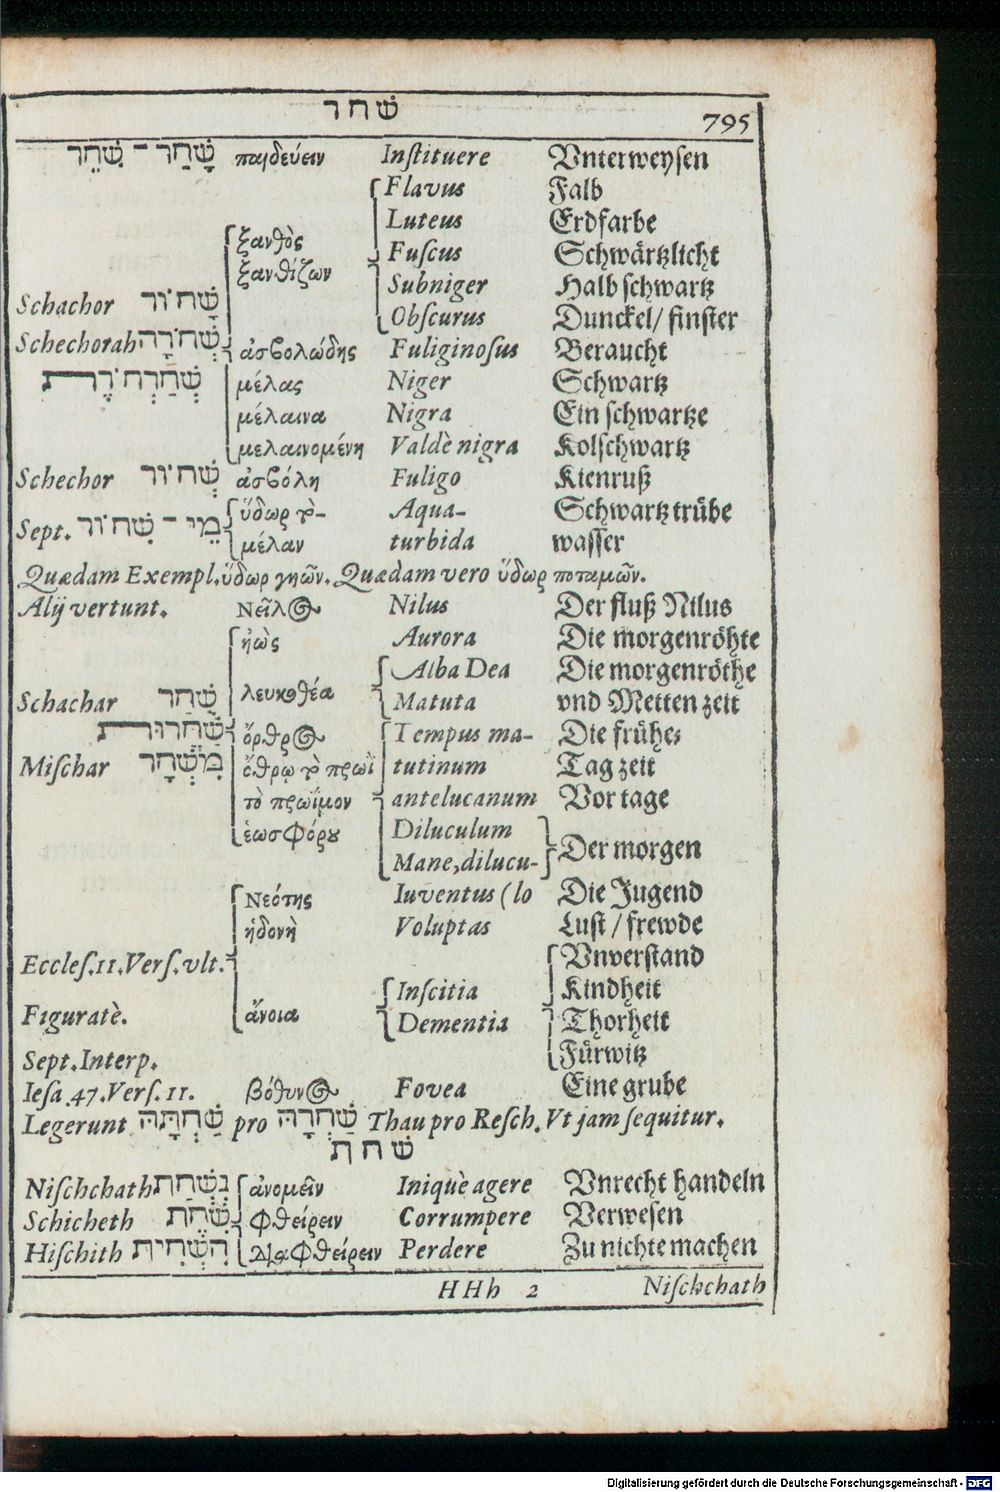 שחר 795
שָׁחַר - שִׁחֵר παιδεύειν Instituere Vnterweysen
Flavus Falb
Luteus Erdfarbe
ξανθὸς Fuscus Schwärtzlicht
ξανθίζων Subniger Halb schwartz
Schachor שָׁחוֹר Obscurus Dunckel/ finster
Schechorah שְׁחֹרָה ἀσβολώδης Fuliginosus Beraucht
שְׁחַרְחֹרֶת μέλας Niger Schwartz
μέλαινα Nigra Ein schwartze
μελαινομένη Valdè nigra Kolschwartz
Schechor שְׁחוֹר ἀσβόλη Fuligo Kienruß
Sept. מֵי - שִׁחוֹר ὕδωρ τὸ- Aqua- Schwartz trübe
μέλαν turbida wasser
Quædam Exempl. ὕδωρ γηῶν. Quædam vero ὕδωρ ποταμῶν.
Alij vertunt. Νεῖλος Nilus Der fluß Nilus
ἠὼς Aurora Die morgenröhte
Alba Dea Die morgenröthe
Schachar שַׁחַר λευκοθέα Matuta vnd Metten zeit
שַׁחֲרוּת ὄρθρος Tempus ma- Die frühe;
Mischar מִשְׁחָר ὄθρῳ τὸ πρωῒ tutinum Tag zeit
τὸ πρωΐμον antelucanum Vor tage
ἑωσφόρου Diluculum
Mane, dilucu- Der morgen
Νεότης Iuventus (lo Die Jugend
ἡδονὴ Voluptas Lust / frewde
Eccles. 11. Vers. vlt. Vnverstand
Inscitia Kindheit
Figuratè. ἄνοια Dementia Thorheit
Sept. Interp. Fürwitz
Iesa. 47. Vers. 11. βόθυνος Fovea Eine grube
Legerunt שַׁחְתָּהּ pro שַׁחְרָהּ Thau pro Resch. Vt jam sequitur.
שחת
Nischchath נִשְׁחַת ἀνομεῖν Iniquè agere Vnrecht handeln
Schicheth שִׁחֵת φθείρειν Corrumpere Verwesen
Hischith הִשְׁחִית διαφθείρειν Perdere Zu nichte machen
HHh 2 Nischchath
Digitalisierung gefördert durch die Deutsche Forschungsgemeinschaft - DFG